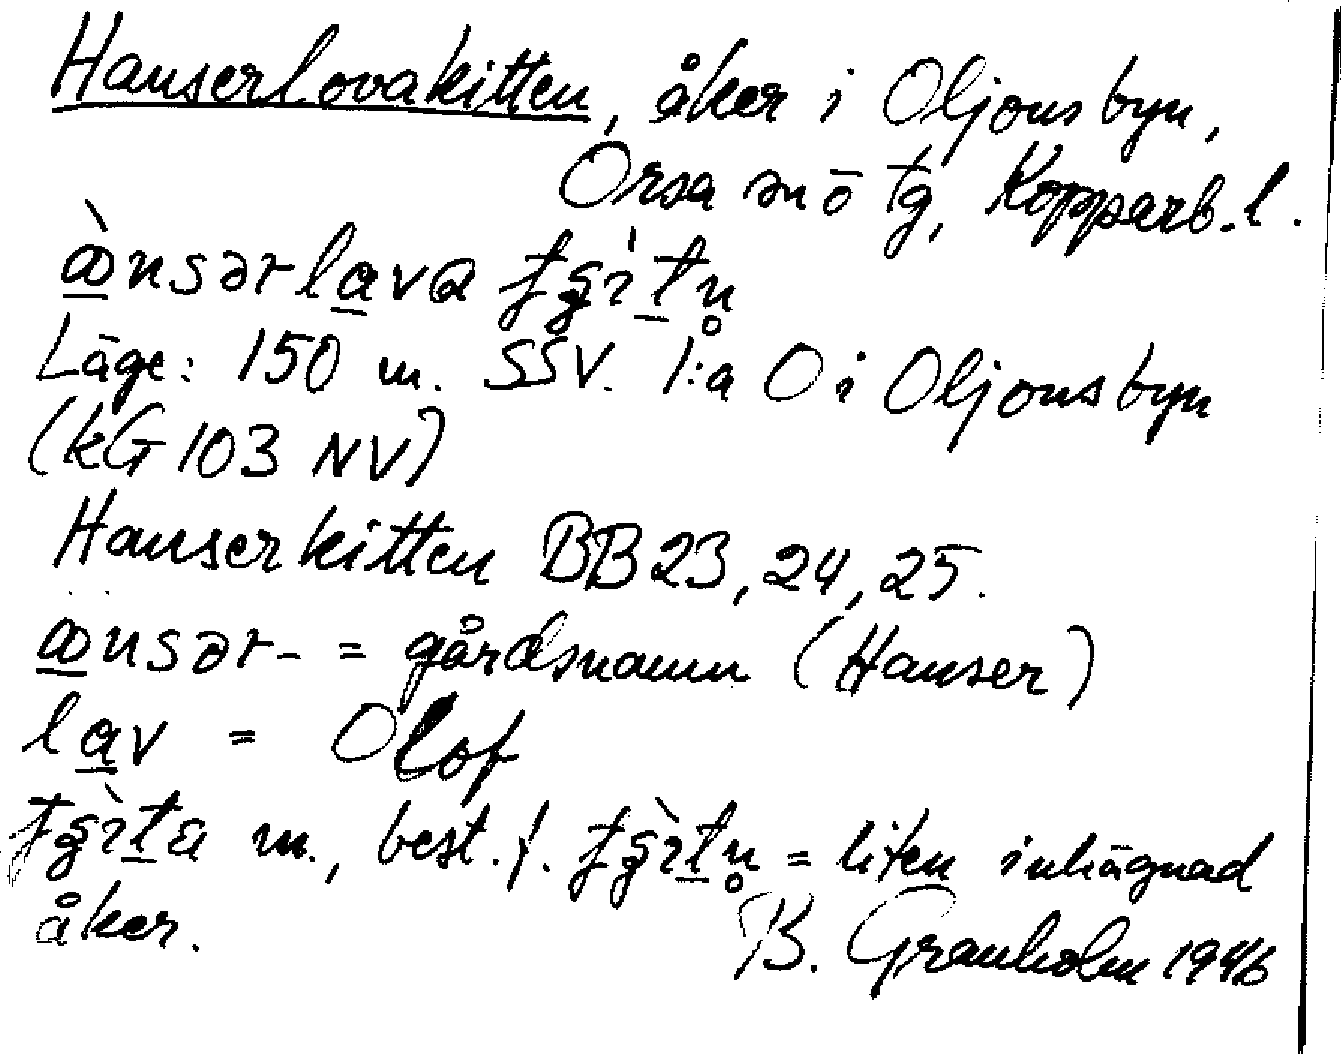 Hanserlovakitten, åker i Oljonsbyn,
Orsa sn ö tg, Kopparb. l.
Läge: 150 m. SSV. 1:a O i Oljonsbyn
(kG 103 NV)
Hanserkitten BB 23, 24, 25.
ansər- = gårdsnamn (Hanser)
lav = Olof
m., best. f. = liten inhägnad
åker. B. Granholm 1946